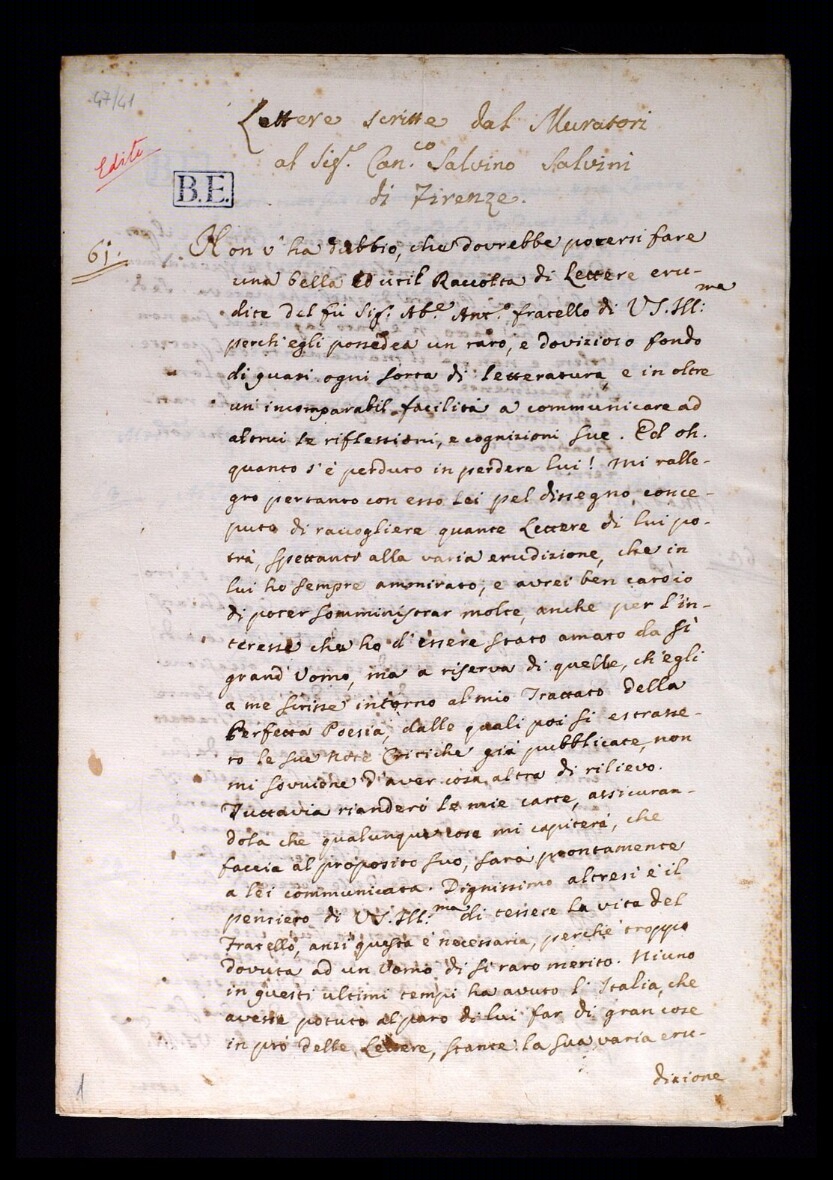 47/41
Lettere scritte dal Muratori
al Sig.r Can.co Salvino Salvini
di Firenze.
Edite
B.E.
61.
Non v'ha dubbio, che dovrebbe potersi fare
una bella ed util Raccolta di Lettere eru-
dite del fù Sig.r Ab.e Ant.o fratello di VS. Ill:ma
perch'egli possedea un raro, e dovizioso fondo
di quasi ogni sorta di letteratura, e in oltre
un'incomparabil facilità a communicare ad
altrui le riflessioni, e cognizioni sue. Ed oh.
quanto s'è perduto in perdere lui! Mi ralle-
gro pertanto con esso Lei pel dissegno conce-
puto di raccogliere quante Lettere di lui po-
trà, spettanti alla varia erudizione, che in
lui ho sempre ammirato; e avrei ben caro io
di poter somministrar molte, anche per l'in-
teresse che ho d'essere stato amato da sì
grand'Uomo, ma a riserva di quelle, ch'egli
a me scrisse intorno al mio Trattato della
Perfetta Poesia, dalle quali poi si estrasse-
ro le sue Note Critiche già pubblicate, non
mi sovviene d'aver cosa altra di rilievo.
Tuttavia rianderò le mie carte, assicuran-
dola che qualunque cose mi capiterà, che
faccia al proposito suo, sarà prontamente
a lei communicata. Dignissimo altresì è il
pensiero di VS. Ill.ma di tessere la vita del
Fratello, anzi questa è necessaria, perchè troppo
dovuta ad un Uomo di sì raro merito. Niuno
in questi ultimi tempi ha avuto l'Italia, che
avesse potuto al paro di lui far di gran cose
in prò delle Lettere, stante la sua varia eru-
dizione
1